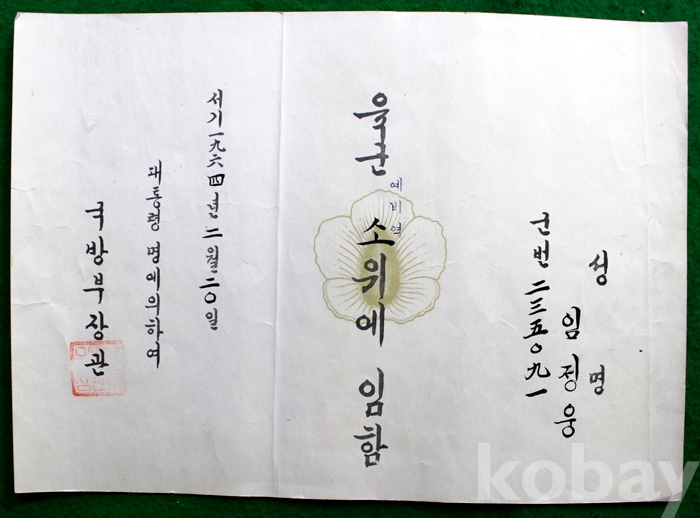 성명
임정웅
군번 二三五〇九一
육군 소위에 임함
예비역
서기 一九六四년 二월 二〇일
대통령 명에의하여
국방부장관
kobay